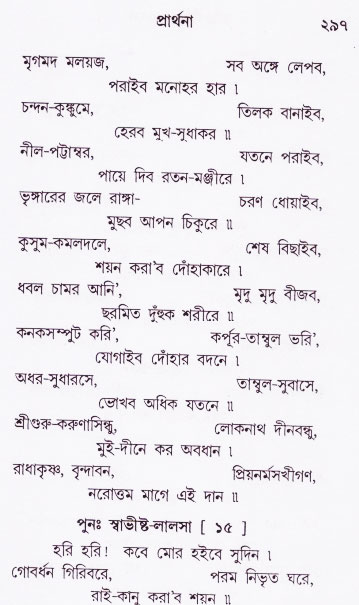 প্রার্থনা ২৯৭
মৃগমদ মলয়জ, সব অঙ্গে লেপব,
পরাইব মনোহর হার।
চন্দন-কুঙ্কুমে, তিলক বানাইব,
হেরব মুখ-সুধাকর॥
নীল-পট্টাম্বর, যতনে পরাইব,
পায়ে দিব রতন-মঞ্জীরে।
ভৃঙ্গারের জলে রাঙ্গা- চরণ ধোয়াইব,
মুছব আপন চিকুরে॥
কুসুম-কমলদলে, শেষ বিছাইব,
শয়ন করা'ব দোঁহাকারে।
ধবল চামর আনি', মৃদু মৃদু বীজব,
ছরমিত দুঁহুক শরীরে॥
কনকসম্পুট করি', কর্পূর-তাম্বুল ভরি',
যোগাইব দোঁহার বদনে।
অধর-সুধারসে, তাম্বুল-সুবাসে,
ভোখব অধিক যতনে॥
শ্রীগুরু-করুণাসিন্ধু, লোকনাথ দীনবন্ধু,
মুই-দীনে কর অবধান।
রাধাকৃষ্ণ, বৃন্দাবন, প্রিয়নর্মসখীগণ,
নরোত্তম মাগে এই দান॥
পুনঃ স্বাভীষ্ট-লালসা [ ১৫ ]
হরি হরি! কবে মোর হইবে সুদিন।
গোবর্ধন গিরিবরে, পরম নিভৃত ঘরে,
রাই-কানু করা'ব শয়ন॥